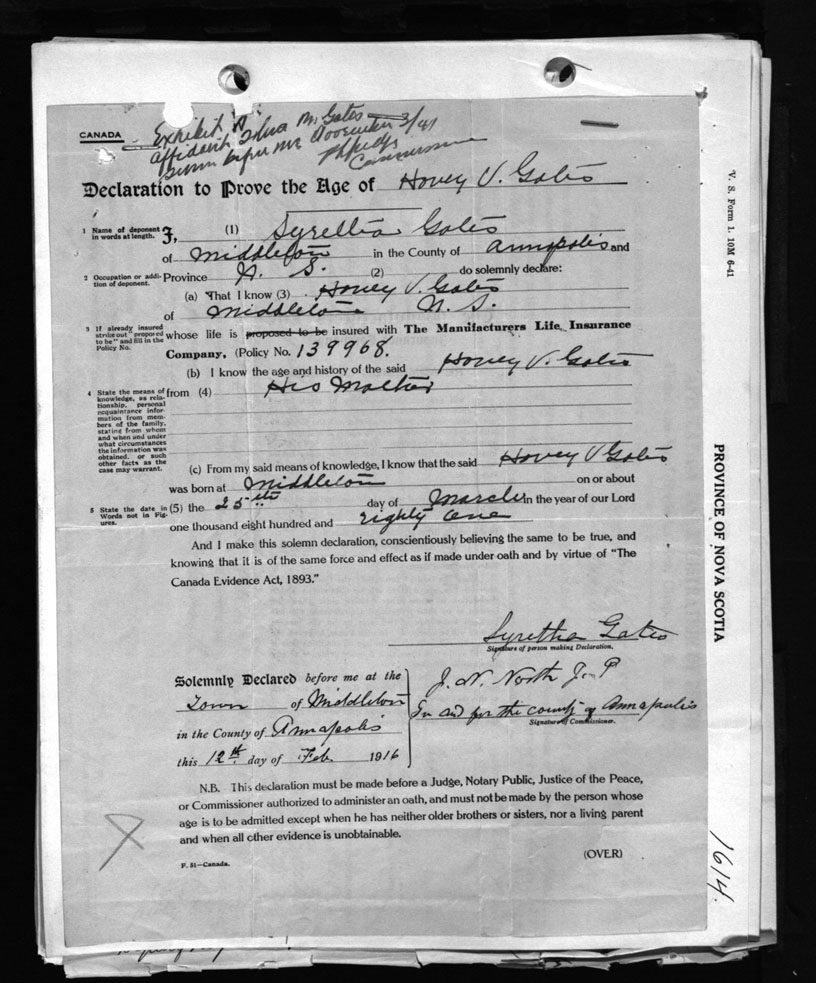 CANADA
Exhibit A
affidavit M. Gates
sworn before me November 3/41
Declaration to Prove the Age of Hovey V. Gates
1 Name of deponent in words at length.
I, (1) Syretha Gates
of Middleton in the County of Annapolis and
2 Occupation or addition of deponent.
Province N. S. (2) do solemnly declare:
(a) That I know (3) Hovey V. Gates
of Middleton N. S.
3 If already insured strike out "proposed to be" and fill in the Policy No.
whose life is proposed to be insured with The Manufacturers Life Insurance
Company, (Policy No. 139968.
(b) I know the age and history of the said Hovey V. Gates
4 State the means of knowledge, as relationship, personal acquaintance information from members of the family, stating from whom and when and under what circumstances the information was obtained, or such other facts as the case may warrant.
from (4) His Mother
(c) From my said means of knowledge, I know that the said Hovey V Gates
was born at Middleton on or about
5 State the date in Words not in Figures.
(5) the 25th day of March in the year of our Lord
one thousand eight hundred and eighty one
And I make this solemn declaration, conscientiously believing the same to be true, and
knowing that it is of the same force and effect as if made under oath and by virtue of "The
Canada Evidence Act, 1893."
Syretha Gates
Signature of person making Declaration.
Solemnly Declared before me at the
Town of Middleton
in the County of Annapolis
this 12th day of Feb. 1916
J. N. North J. P
In and for the county of Annapolis
Signature of Commissioner.
N.B. This declaration must be made before a Judge, Notary Public, Justice of the Peace,
or Commissioner authorized to administer an oath, and must not be made by the person whose
age is to be admitted except when he has neither older brothers or sisters, nor a living parent
and when all other evidence is unobtainable.
(OVER)
F. 51—Canada.
V. S. Form 1. 10M 6-41
PROVINCE OF NOVA SCOTIA
1614.